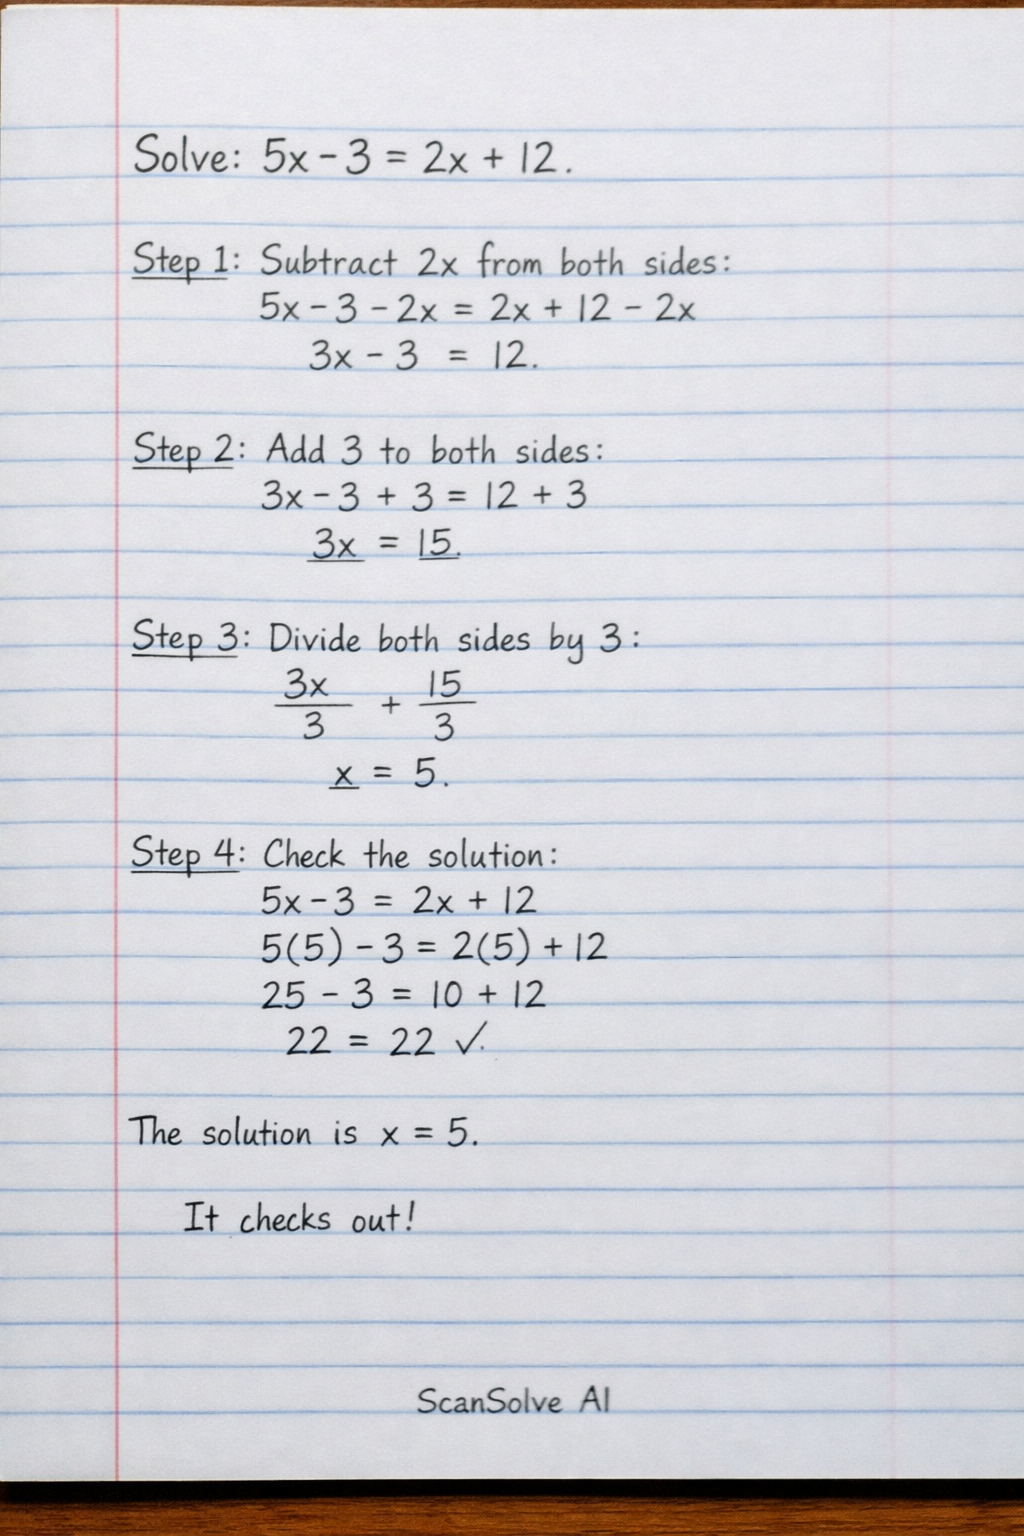 Solve: 5x - 3 = 2x + 12.
Step 1: Subtract 2x from both sides:
5x - 3 - 2x = 2x + 12 - 2x
3x - 3 = 12.
Step 2: Add 3 to both sides:
3x - 3 + 3 = 12 + 3
3x = 15.
Step 3: Divide both sides by 3:
3x/3 + 15/3
x = 5.
Step 4: Check the solution:
5x - 3 = 2x + 12
5(5) - 3 = 2(5) + 12
25 - 3 = 10 + 12
22 = 22 ✓.
The solution is x = 5.
It checks out!
ScanSolve AI